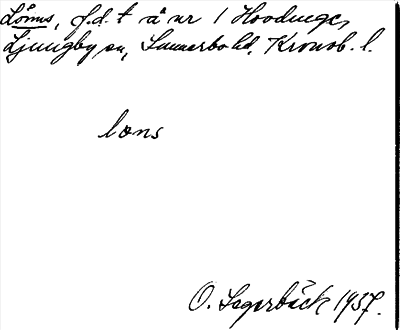 Lönns, f.d. t å nr 1 Hovdinge,
Ljungby sn, Sunnerbo hd, Kronob. l.
lœns
O. Sagerbäck 1937.